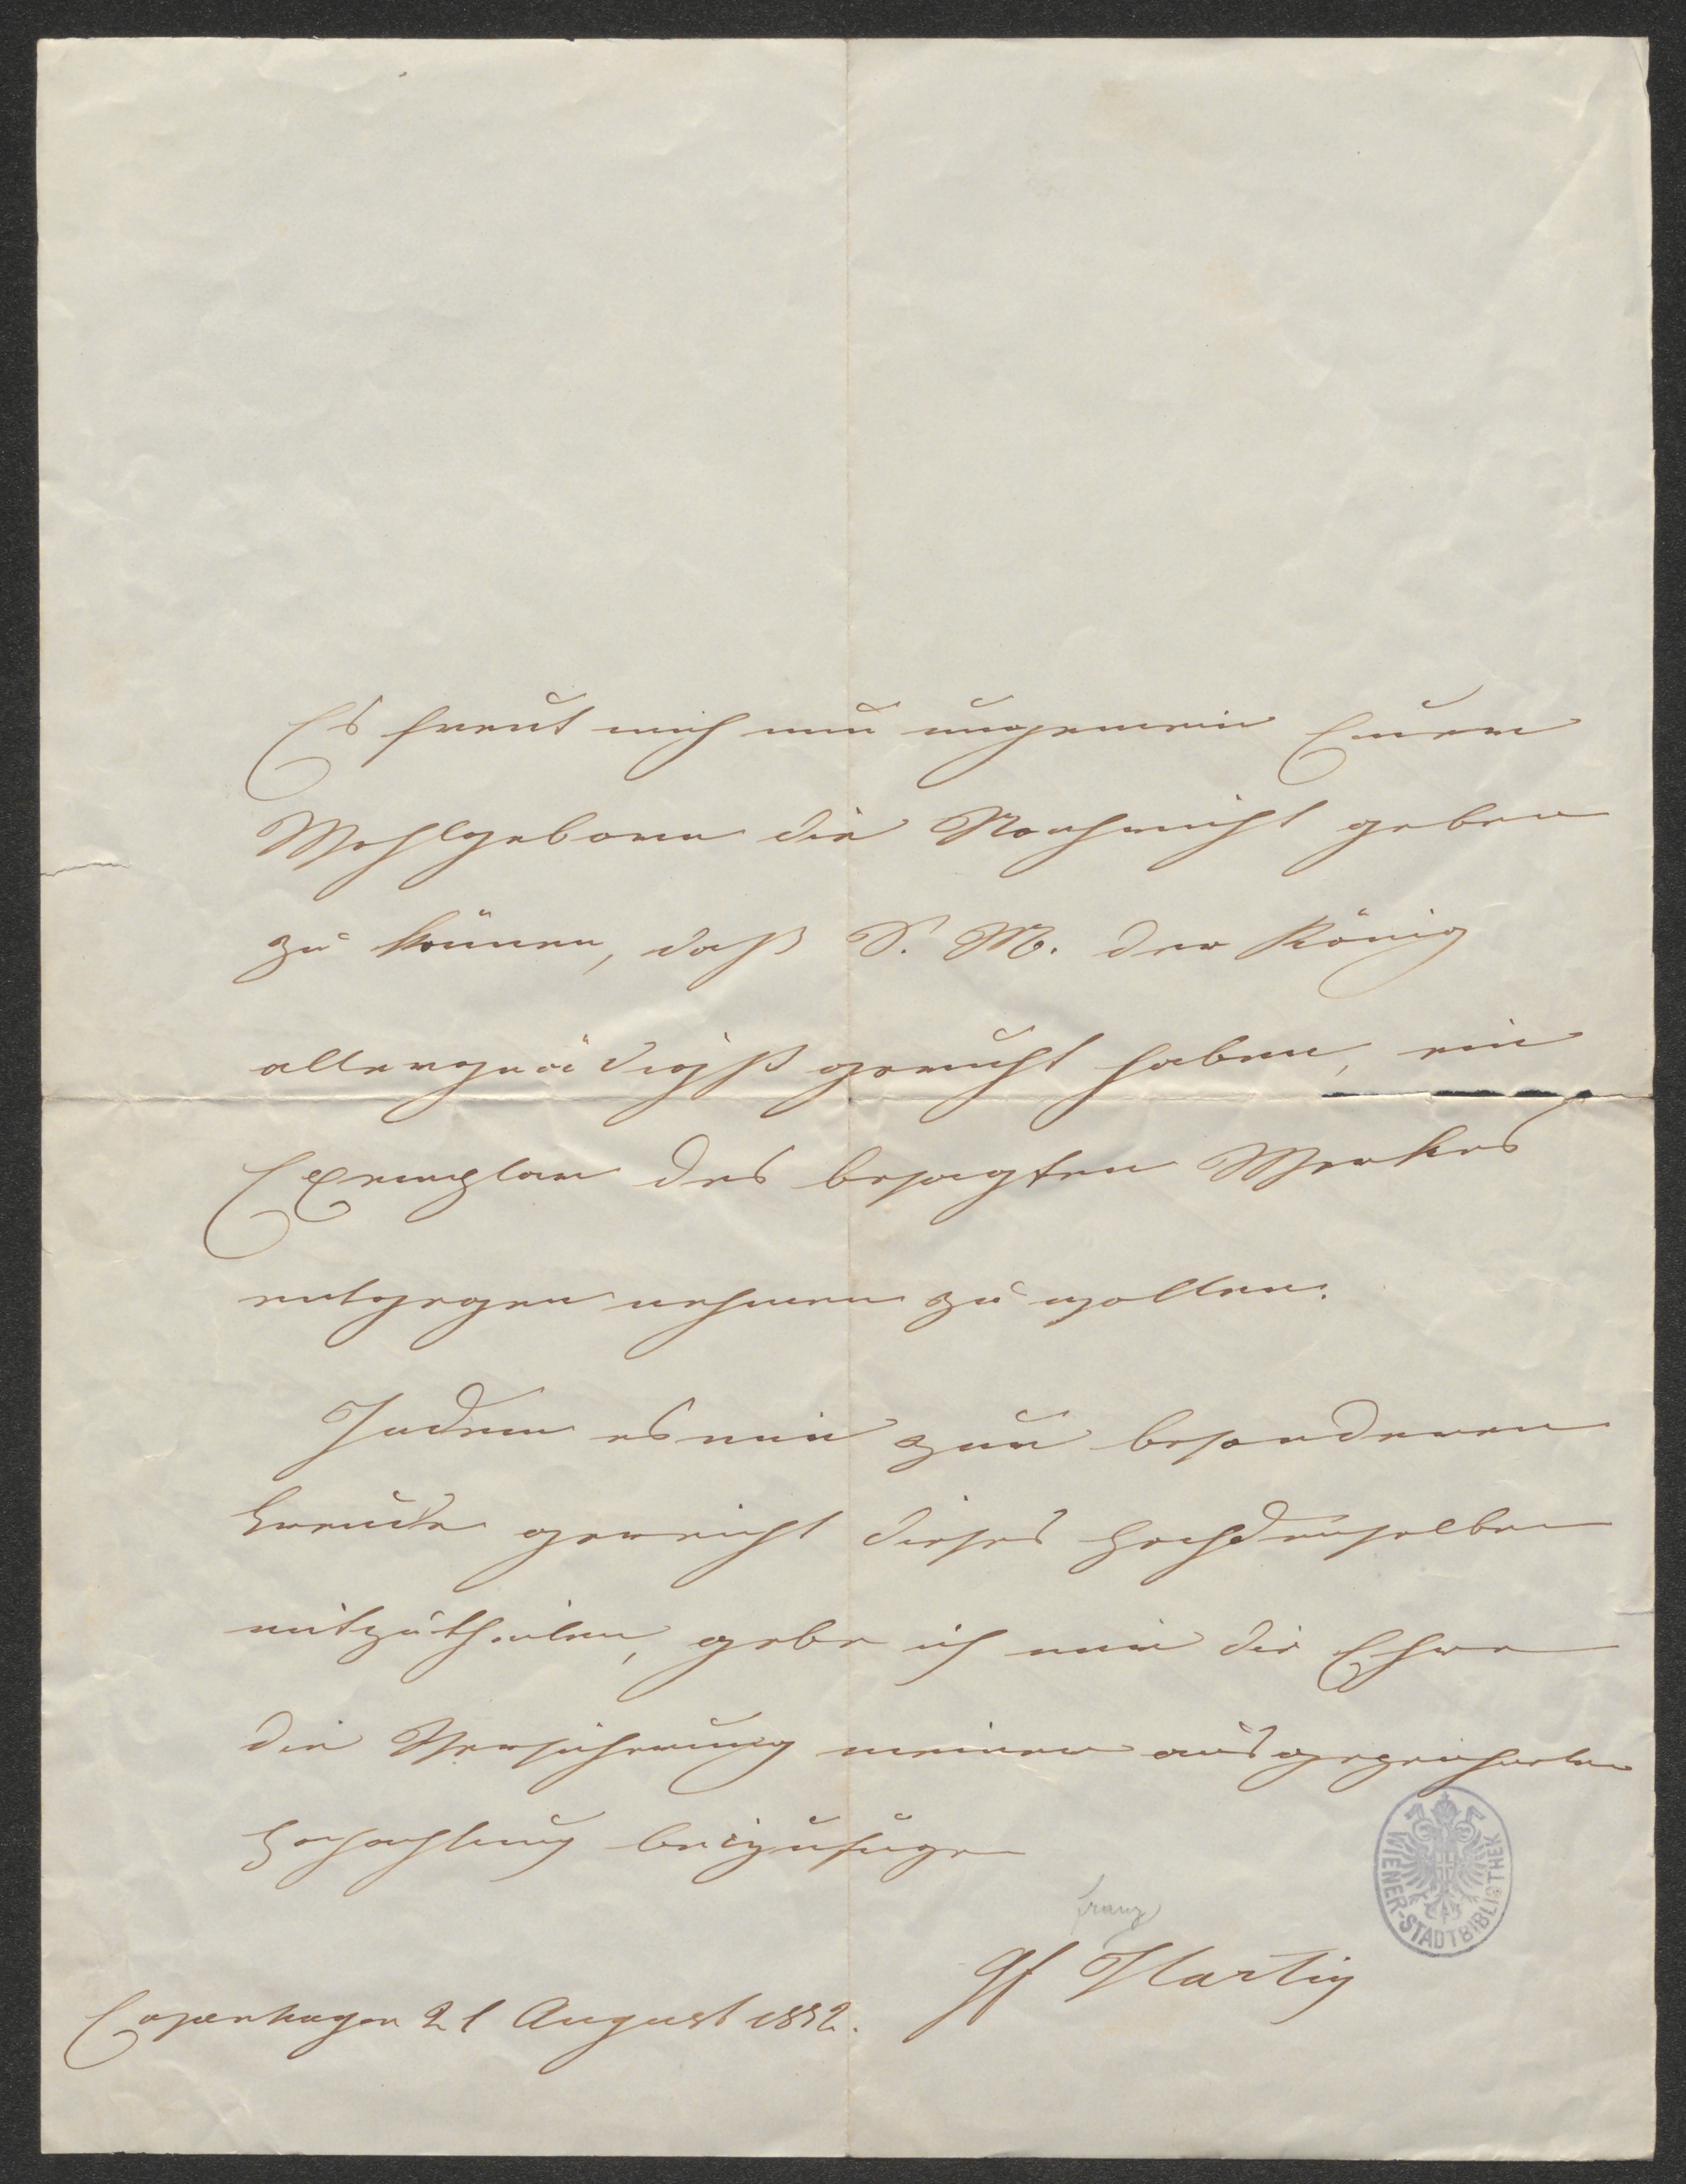 Es freut mich nun ungemein Euer
Wohlgeboren die Nachricht geben
zu können, daß S. M. der König
allergnädigst geruht haben, ein
Exemplar des besagten Werkes
entgegen nehmen zu wollen.
Indem es mir zur besonderen
Freude gereicht dieses Hochdenselben
mitzutheilen, gebe ich mir die Ehre
die Versicherung meiner ausgezeichneten
Hochachtung beizufügen
Franz
Gf Hartig
Copenhagen 21 August 1852.
WIENER-STADTBIBLIOTHEK